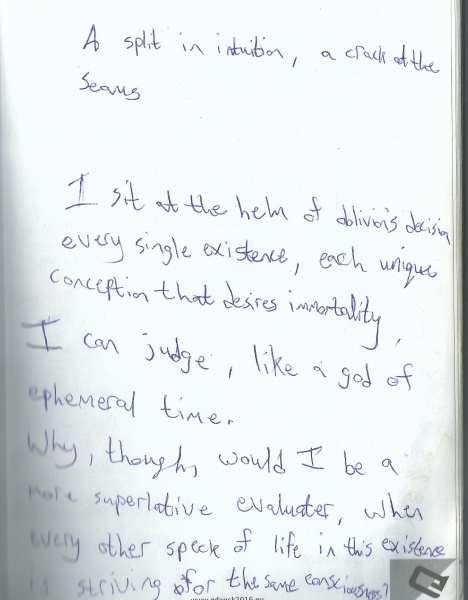 A split in intuition, a crack at the
seams
I sit at the helm of oblivion's decision
every single existence, each unique
conception that desires immortality,
I can judge, like a god of
ephemeral time.
Why, though, would I be a
more superlative evaluater, when
every other speck of life in this existence
is striving for the same consciousness?